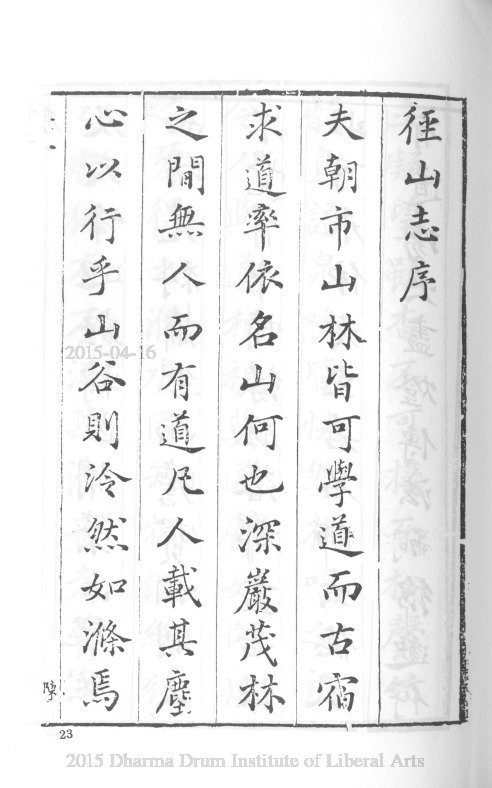 徑山志序
夫朝市山林皆可學道而古宿
求道率依名山何也深巖茂林
之間無人而有道凡人載其塵
心以行乎山谷則泠然如滌焉
23
2015-04-16
2015 Dharma Drum Institute of Liberal Arts